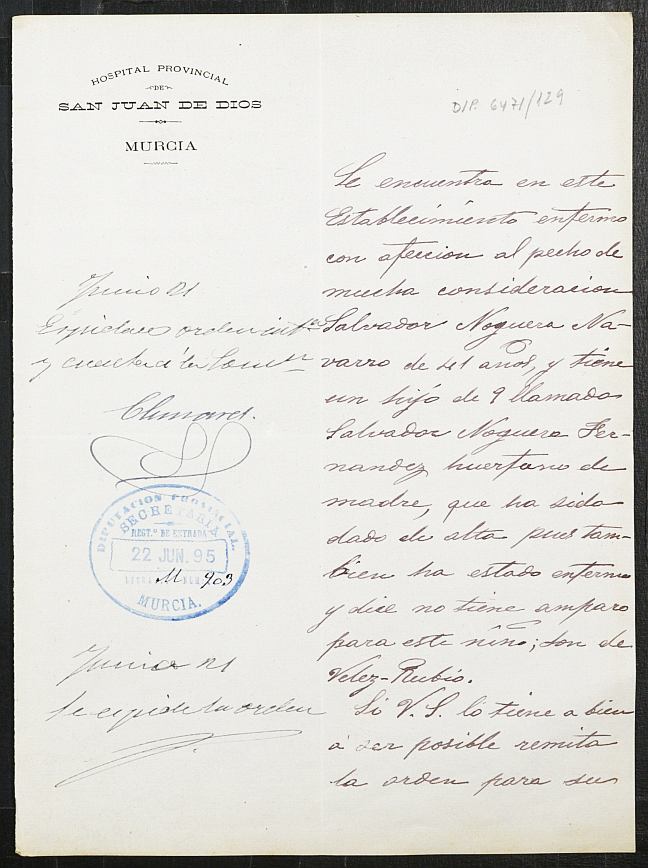 HOSPITAL PROVINCIAL
DE
SAN JUAN DE DIOS
MURCIA
DIP. 6471/129
Se encuentra en este
Establecimiento enfermo
con afeccion al pecho de
mucha consideracion
Salvador Noguera Na-
varro de 41 años, y tiene
un hijo de 9 llamado
Salvador Noguera Fer-
nandez huerfano de
madre, que ha sido
dado de alta pues tam-
bien ha estado enfermo
y dice no tiene amparo
para este niño; son de
Velez-Rubio.
Si V.S. lo tiene a bien
á ser posible remita
la orden para su
Junio 21
Expidase orden int.na
y cuenta á la Com.on
DIPUTACION PROVINCIAL.
SECRETARIA
REGT.º DE ENTRADA
22 JUN. 95
LETRA M NUM. 903
MURCIA.
Junio 21
Se expide la orden